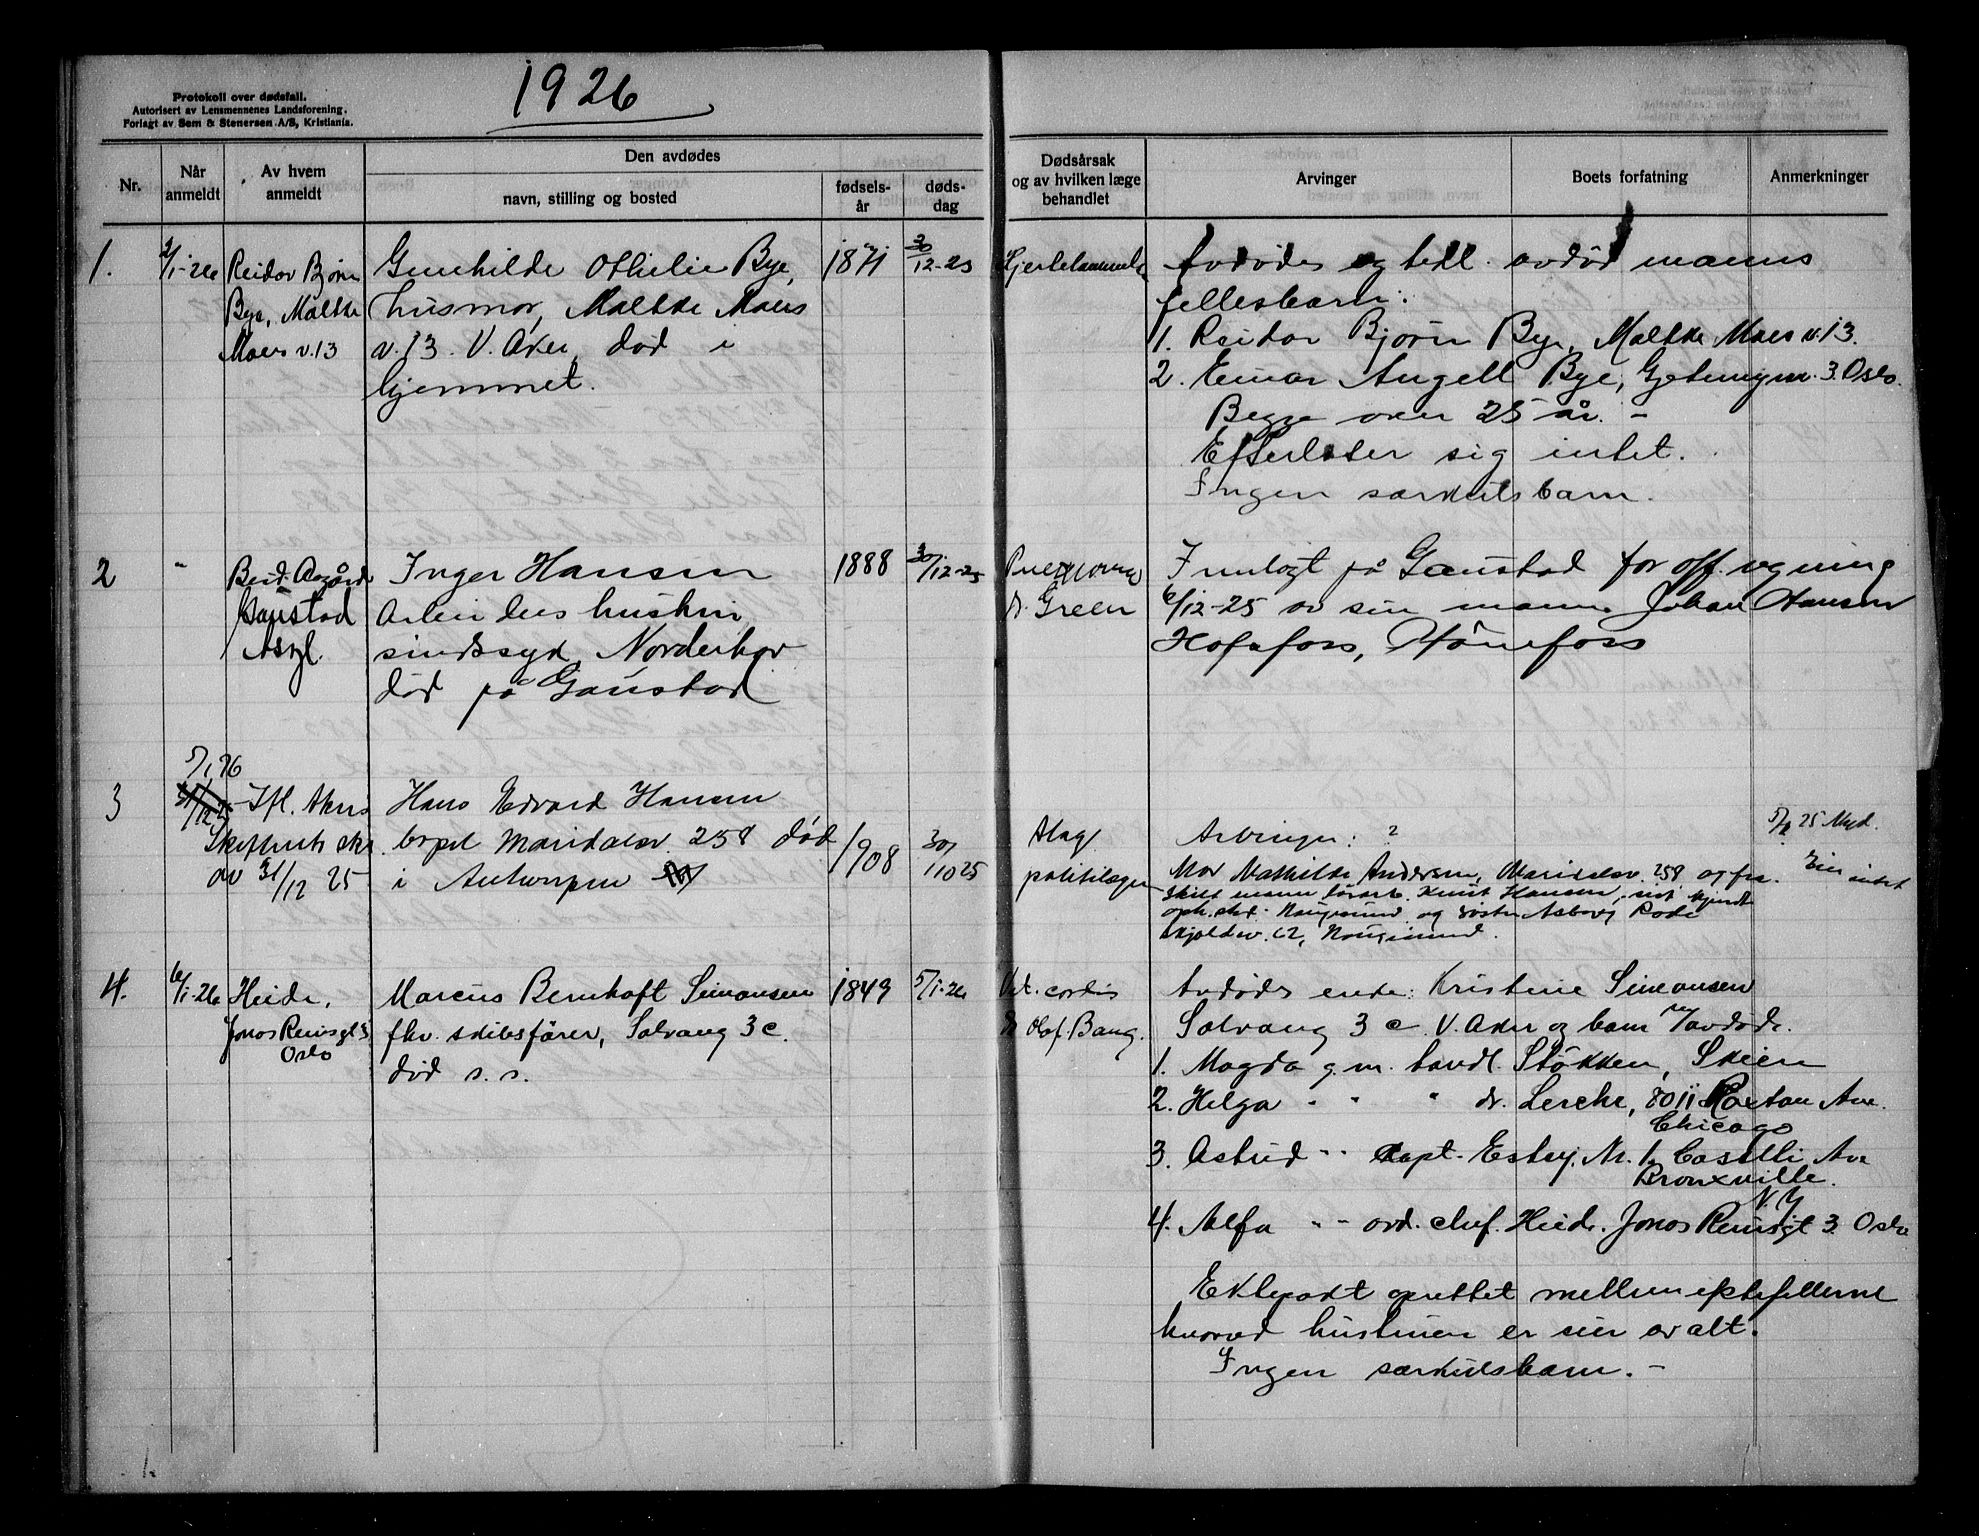 1926
Protokoll over dødsfall.
Autorisert av Lensmennenes Landsforening.
Forlagt av Sem & Stenersen A/S, Kristiania.
Nr.
Når anmeldt
Av hvem anmeldt
Den avdødes
navn, stilling og bosted
fødsels-år
døds-dag
Dødsårsak og av hvilken læge behandlet
Arvinger
Boets forfatning
Anmerkninger
1.
2/1-26
Reidar Bjørn
Bye, Moltke
Moes v. 13
Gunhilde Othilie Bye,
husmor, Moltke Moes
v. 13. V. Aker, død i
hjemmet.
1871
30/12-25
Hjertelammelse
Avdødes og tidl. avdød manns
fellesbarn:
1. Reidar Bjørn Bye, Moltke Moes v. 13.
2. Einar Angell Bye, 3. Oslo.
Begge over 25 år. -
Efterlater sig intet.
Ingen særkulsbarn.
2
"
Best. Aagård
Gaustad
Asyl.
Inger Hansen
Arbeiders hustru,
sindssyk, Norderhov
død på Gaustad
1888
30/12-25
Pneumoni
dr. Green
Innlagt på Gaustad for off. regning
6/12-25 av sin mann Johan Hansen
Hofsfoss, Hønefoss
3
5/1 26
31/12 25
Ifl. Akers
Skifterets skr.
av 31/12 25
Hans Edvard Hansen
bopel Maridalsv. 258 død
i Antwerpen
1908
30/10 25
Slag
politilegen
Arvinger: ?
Mor Mathilde Andersen, Maridalsv. 258 og fra-
skilt mann Knut Hansen, sist kjendt
oph. sted Haugesund og søster Aasborg Rode
Skjoldav. 62, Haugesund.
25 Myd.
Eier intet
4.
6/1-26
Heide,
Jonas Reinsgt 3
Oslo
Marcus Bernhoft Simonsen
fhv. skibsfører, Solvang 3 c.
død s. s.
1849
5/1-26
Vit. cordis
dr Olaf Bang.
Avdødes enke: Kristine Simonsen
Solvang 3 c. V. Aker og barn m/avdøde.
1. Magda g.m. handl. Stokken, Skien
2. Helga " " " dr. Lerche, 8011 Paxton Ave.
Chicago
3. Astrid " " capt. Esbej. Nr. 1. Ave
Bronxville.
N.Y
4. Alfa " " avd. chef. Heide. Jonas Reinsgt 3. Oslo
Ektepakt oprettet mellem ektefellerne
hvorved hustruen er eier av alt.
Ingen særkulsbarn. -